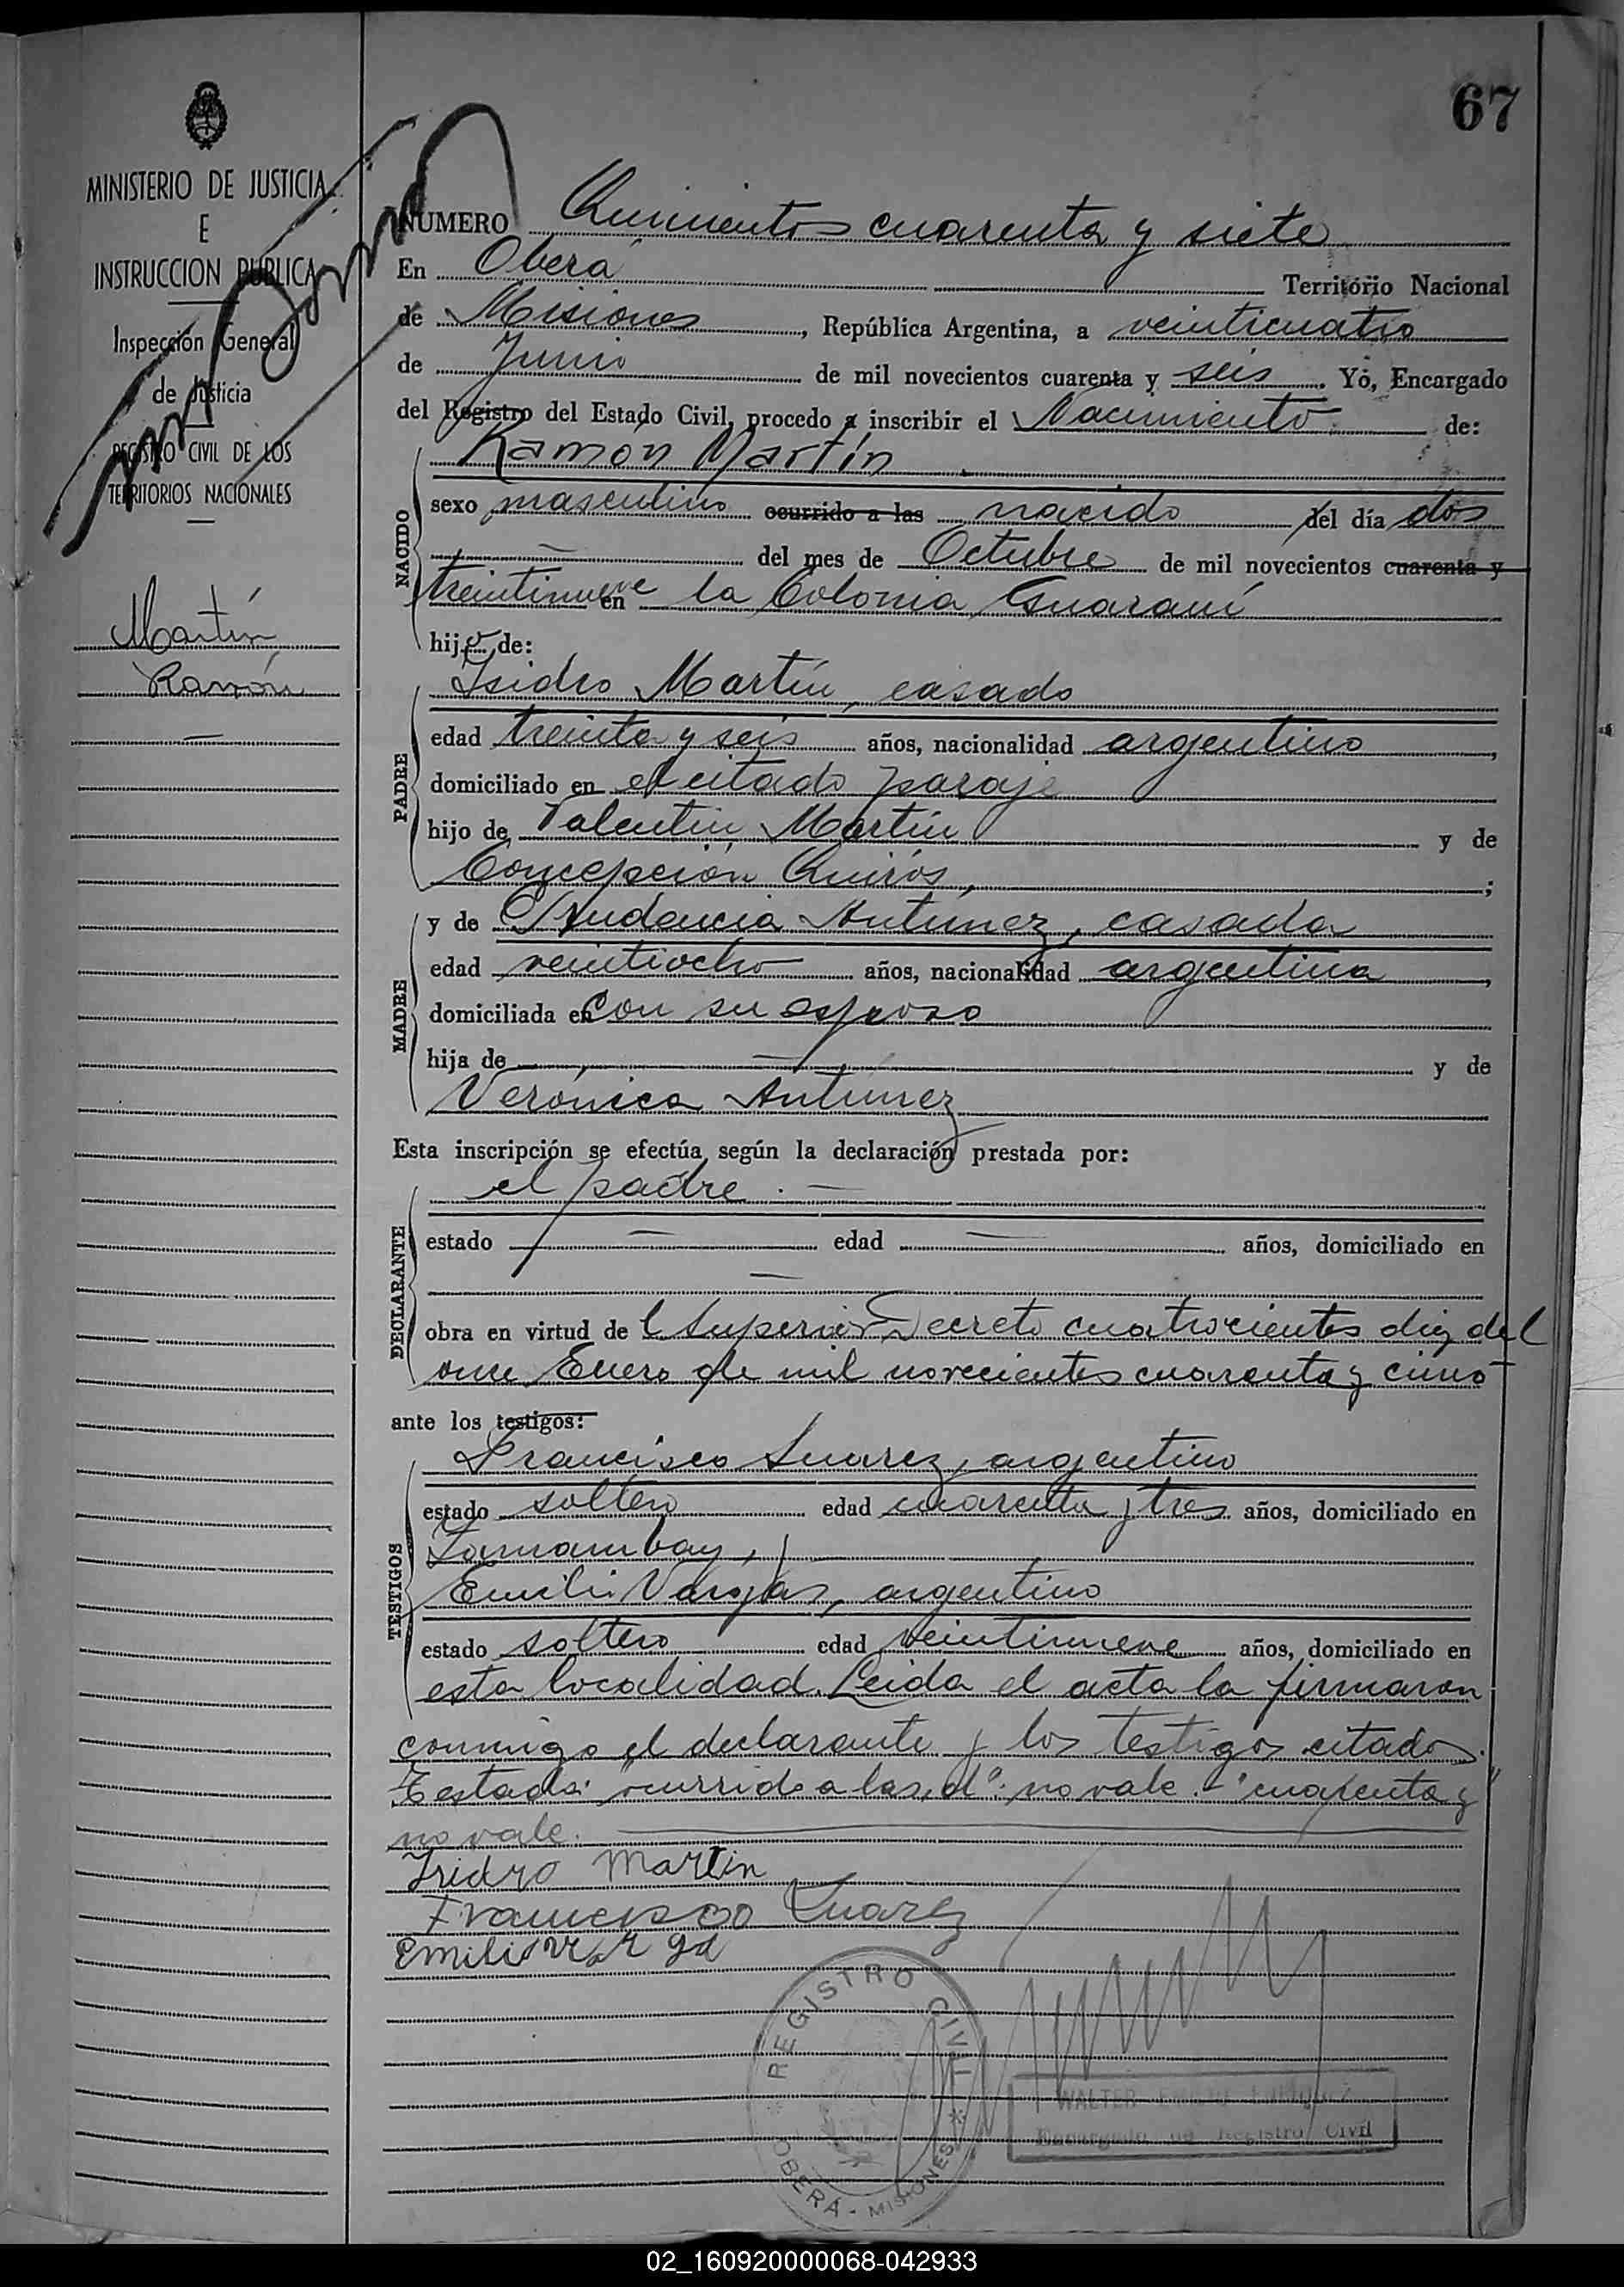 67
MINISTERIO DE JUSTICIA
E
INSTRUCCION PUBLICA
Inspección General
de Justicia
REGISTRO CIVIL DE LOS
TERRITORIOS NACIONALES
Martín
Ramón
NUMERO Quinientos cuarenta y siete
En Oberá Territorio Nacional
de Misiones, República Argentina, a veinticuatro
de Junio de mil novecientos cuarenta y seis. Yo, Encargado
del Registro del Estado Civil, procedo a inscribir el Nacimiento de:
Ramón Martín
NACIDO
sexo masculino ocurrido a las nacido del día dos
— del mes de Octubre de mil novecientos cuarenta y
treintinueve en la Colonia Guaraní
hijo de:
PADRE
Isidro Martín, casado
edad treinta y seis años, nacionalidad argentino,
domiciliado en el citado paraje
hijo de Valentín Martín y de
Concepción Quirós, ;
MADRE
y de Prudencia Antúnez, casada
edad veintiocho años, nacionalidad argentina,
domiciliada en con su esposo
hija de — y de
Verónica Antúnez
Esta inscripción se efectúa según la declaración prestada por:
DECLARANTE
el padre. —
estado — edad — años, domiciliado en
—
obra en virtud del Superior Decreto cuatrocientos diez del
once Enero de mil novecientos cuarenta y cinco
ante los testigos:
TESTIGOS
Francisco Suarez, argentino
estado soltero edad cuarenta y tres años, domiciliado en
Samambay,
Emilio Vargas, argentino
estado soltero edad veintinueve años, domiciliado en
esta localidad. Leida el acta la firmaron
conmigo el declarante y los testigos citados.
Testado: "ocurrido a las, d": no vale. - "cuarenta y"
no vale.
Isidro Martin
Francisco Suarez
Emilio Varga
REGISTRO CIVIL
OBERÁ - MISIONES
WALTER
Encargado del Registro Civil
02_160920000068-042933